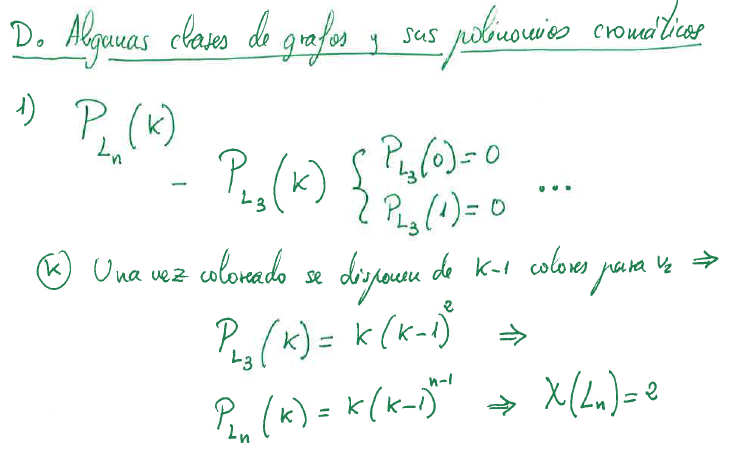 D. Algunas clases de grafos y sus polinomios cromáticos
1) P_{L_n}(k)
- P_{L_3}(k) { P_{L_3}(0) = 0
P_{L_3}(1) = 0 ...
(k) Una vez coloreado se disponen de k-1 colores para v_2 ⇒
P_{L_3}(k) = k(k-1)^2 ⇒
P_{L_n}(k) = k(k-1)^{n-1} ⇒ χ(L_n) = 2